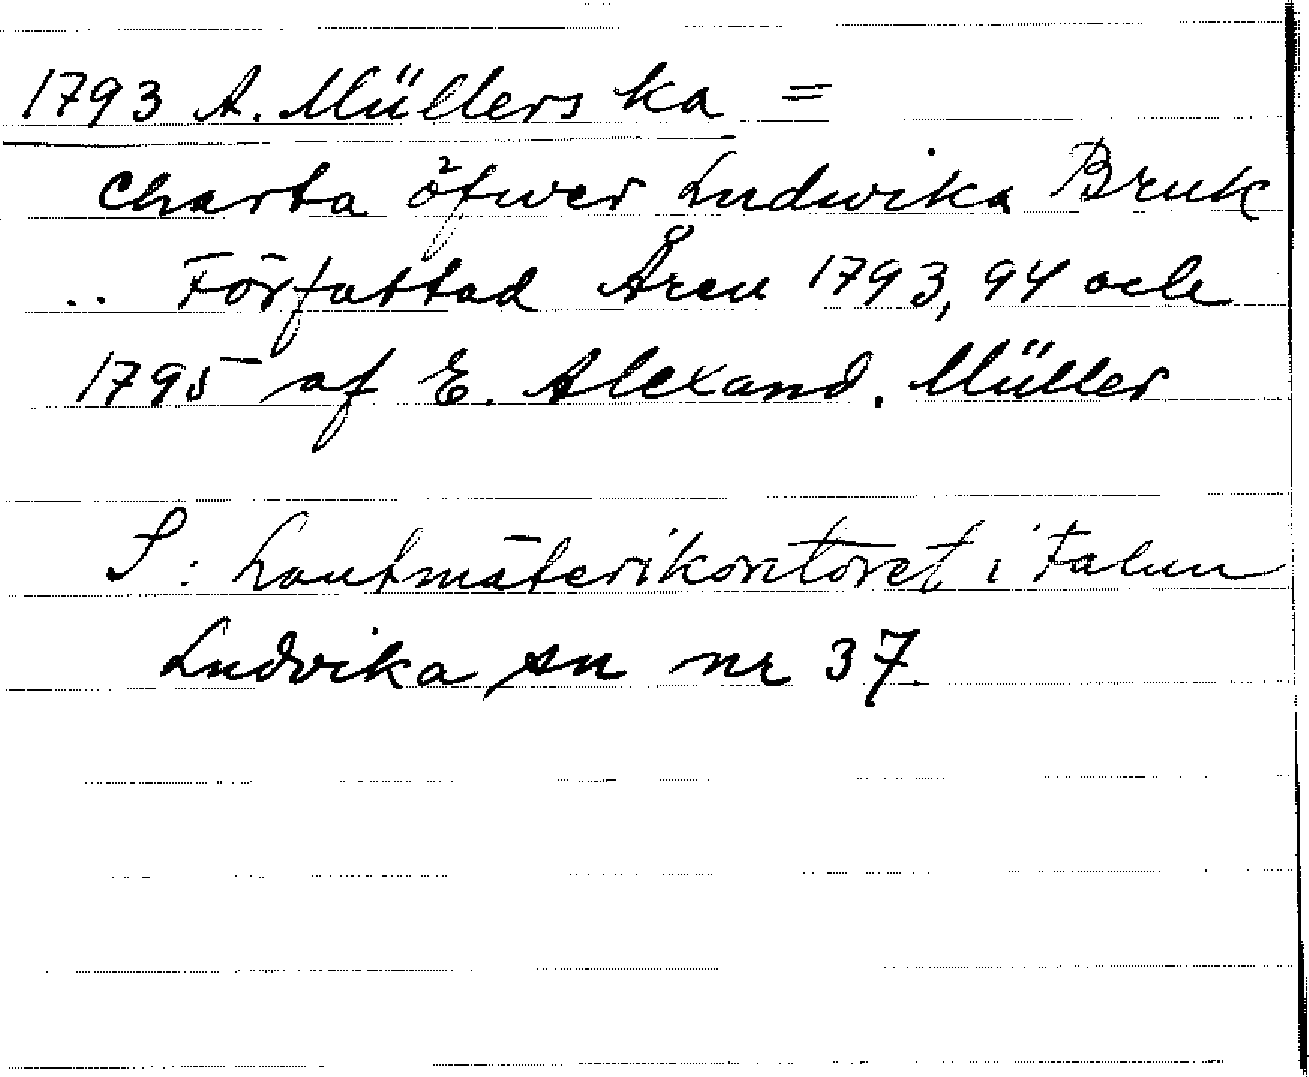 1793 A. Müllers ka =
Charta öfwer Ludwika Bruk
.. Författad Åren 1793, 94 och
1795 af E. Alexand. Müller
S: Lantmäterikontoret i Falun
Ludvika sn nr 37.